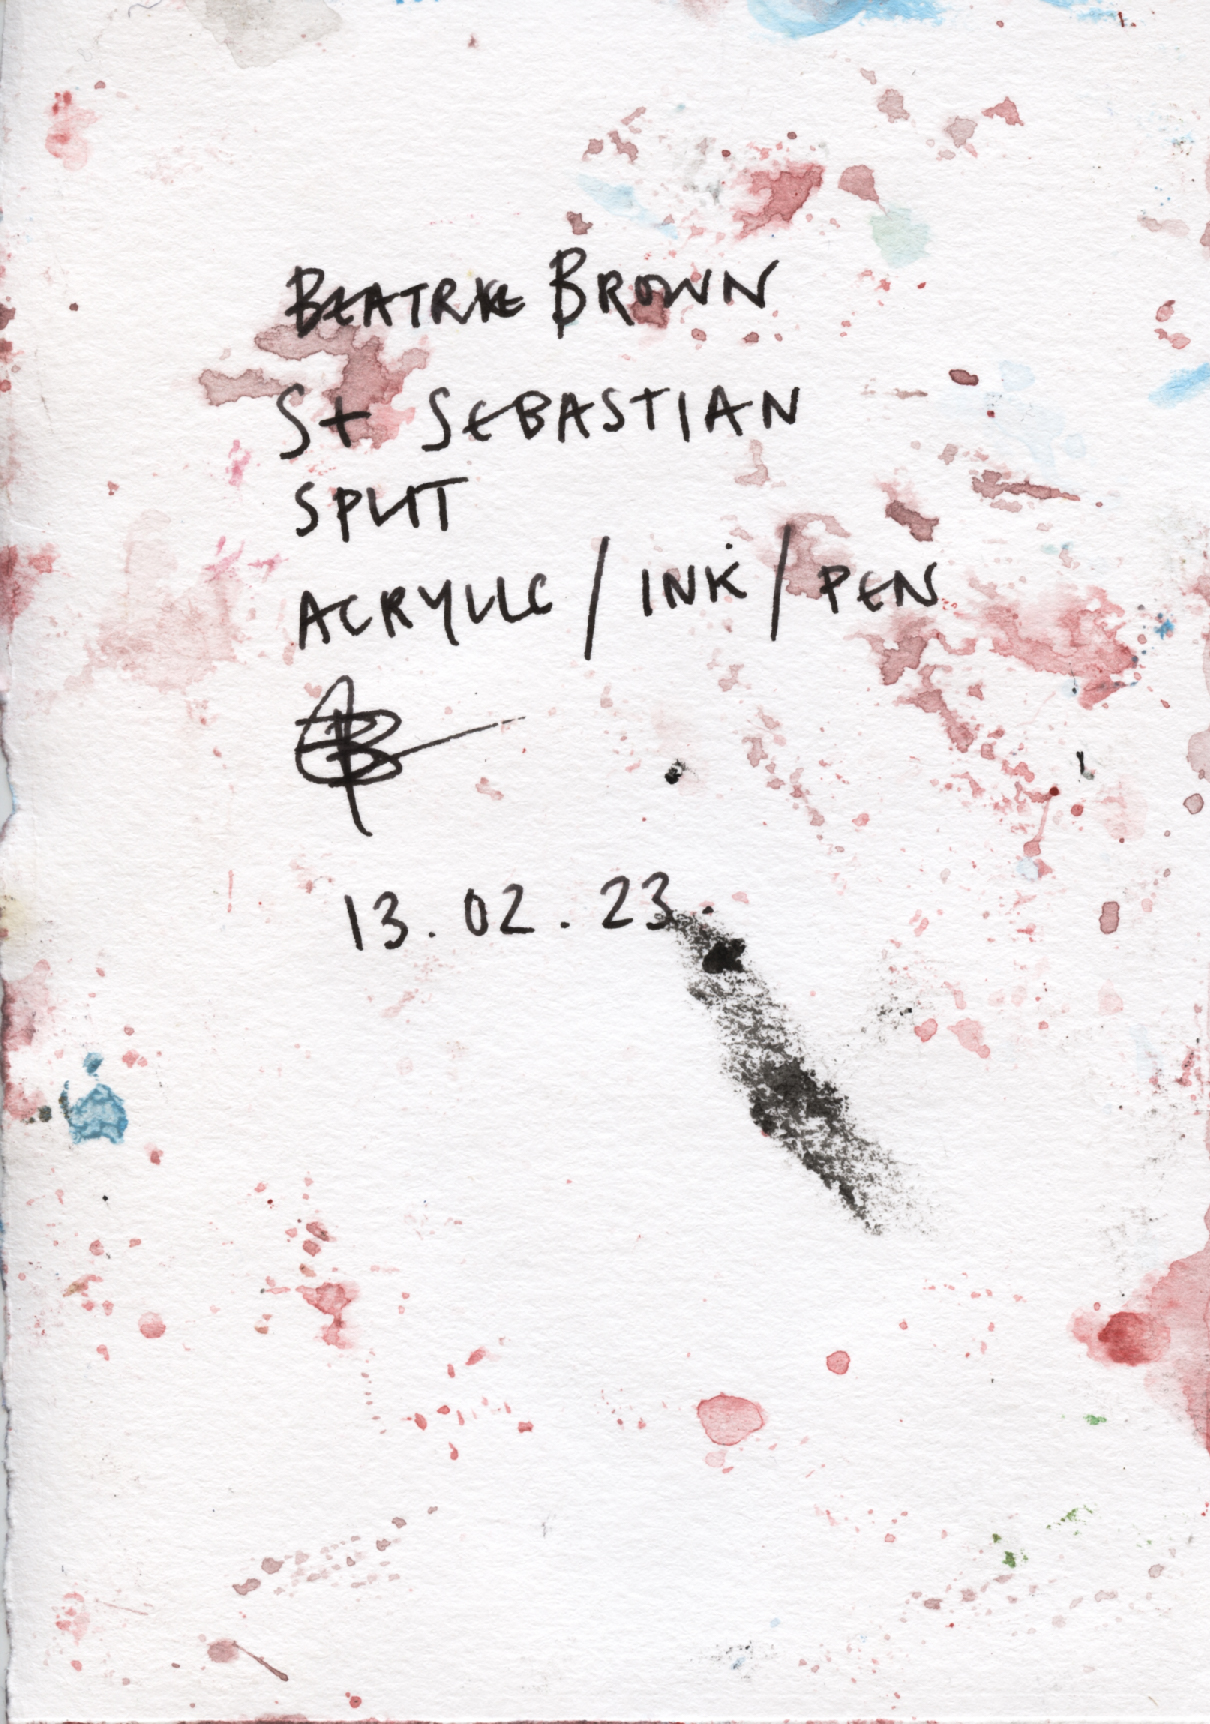 BEATRICE BROWN
St SEBASTIAN
SPLIT
ACRYLIC / INK / PEN
13.02.23